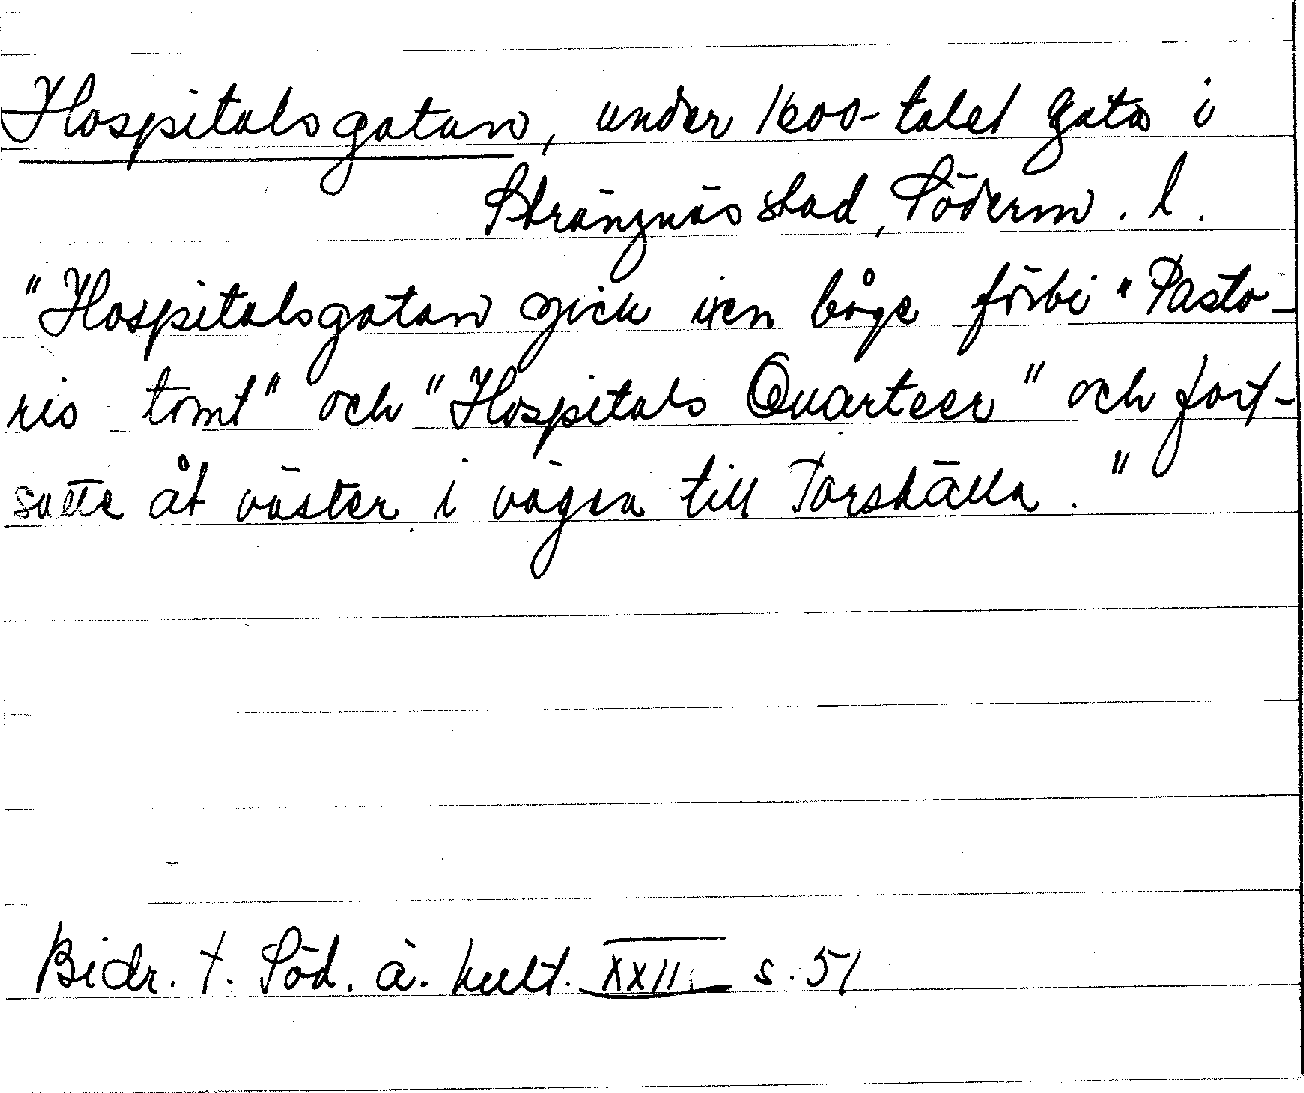 Hospitalsgatan, under 1600-talet gata i
Strängnäs stad, Söderm. l.
"Hospitalsgatan gick i en båge förbi "Pasto-
ris tomt" och "Hospitals Quarteer" och fort-
satte åt väster i vägen till Torshälla."
Bidr. t. Söd. ä. kult. XXII s. 51